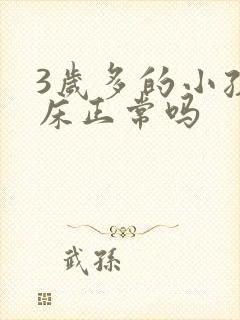 3歲多的小孩
床正常吗
武孫